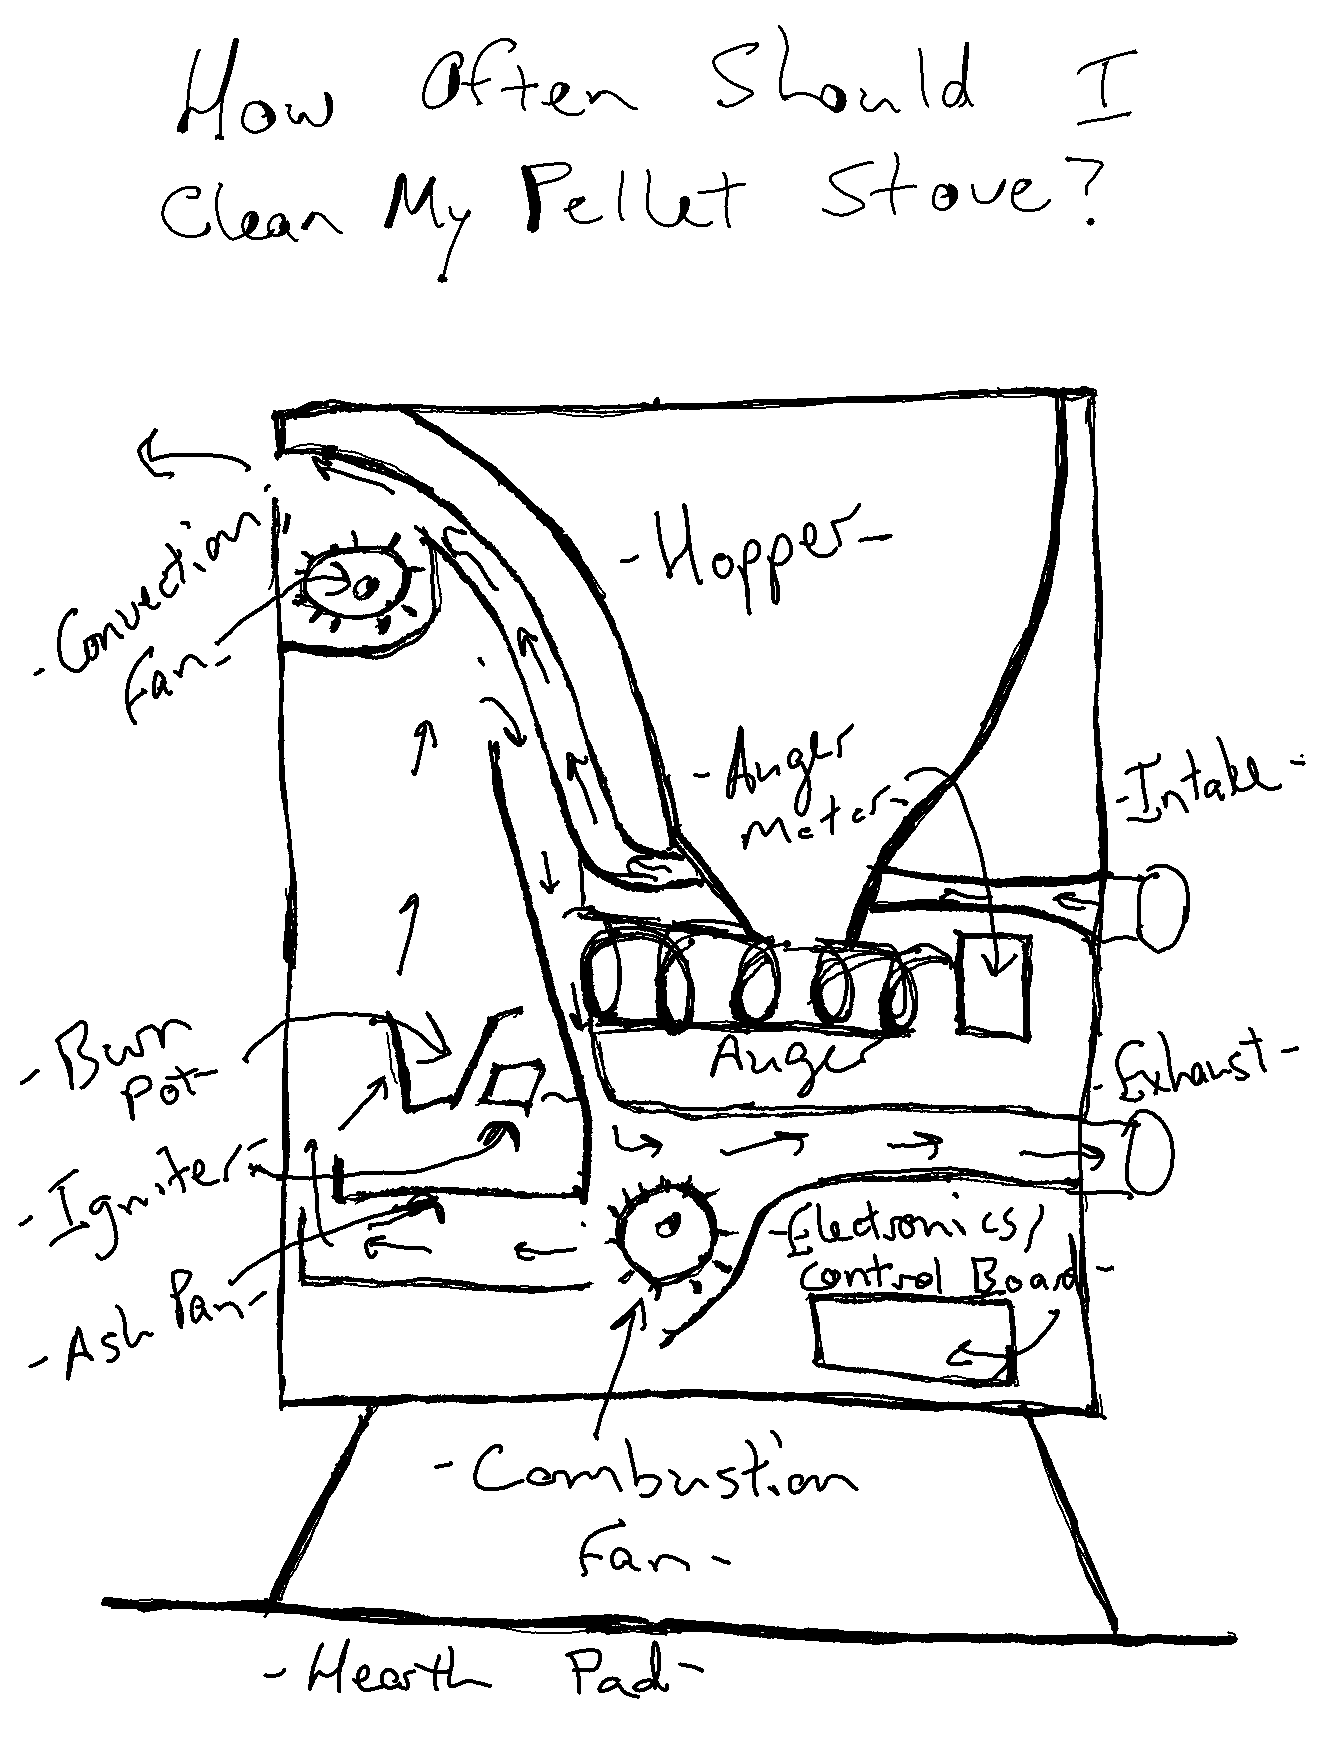 How Often Should I
Clean My Pellet Stove?
- Hopper -
- Convection
Fan -
- Auger
motor -
- Intake -
Auger
- Burn
Pot -
- Exhaust -
- Igniter -
- Electronics/
Control Board -
- Ash Pan -
- Combustion
Fan -
- Hearth Pad -